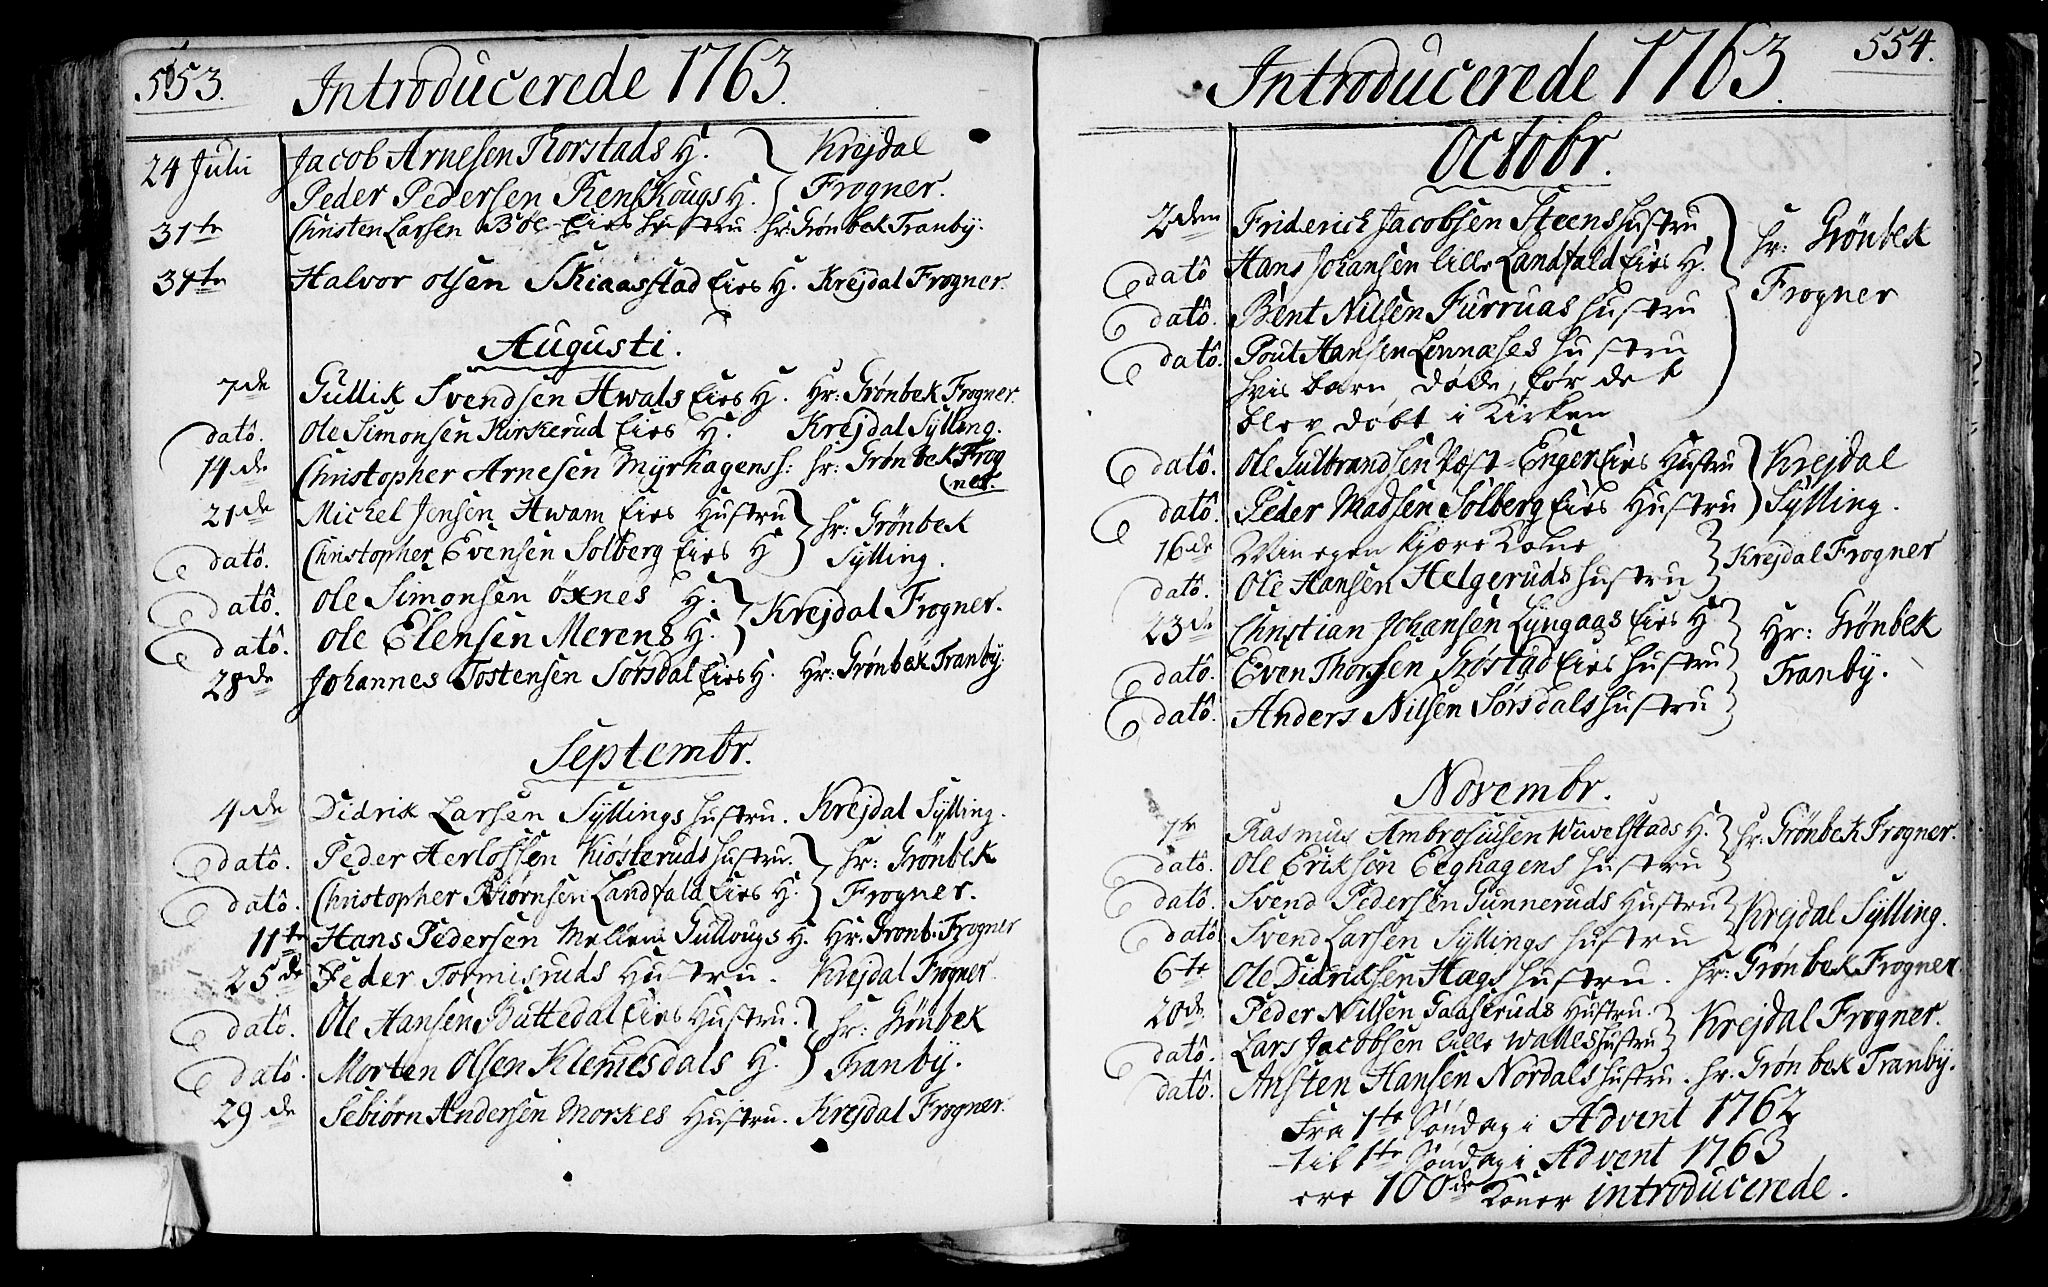 553.
Introducerede 1763.
24 Juli Jacob Arnesen Thorstads H. Krejdal
Peder Pedersen Renskougs H. Frogner.
31te Christen Larsen Böl-Eies hustru hr: Grönbek Tranby.
31te Halvor Olsen Skiaasstad Eies H. Krejdal Frogner.
Augusti.
7de Gullik Svendsen Hwals Eies H. Hr: Grönbek Frogner.
datô. Ole Simonsen Kirkerud Eies H. Krejdal Sylling.
14de Christopher Arnesen Myrhagens h: hr: Grönbek Frog
ner.
21de Michel Jensen Hwam Eies Hustru hr: Grönbek
datô. Christopher Evensen Solberg Eies H Sylling.
datô. Ole Simonsen öxnes H. Krejdal Frogner.
datô. Ole Elensen Merens H.
28de Johannes Tostensen Sörsdal Eies H. Hr: Grönbek Tranby.
Septembr.
4de Didrik Larsen Syllings hustru. Krejdal Sylling.
datô. Peder Herlofsen Kiösteruds hustru. hr: Grönbek
datô. Christopher Biörnsen Landfald Eies H. Frogner.
11te Hans Pedersen Mellem Gullougs H. Hr: Gronb: Frogner
25de Peder Tormisruds Hustru. Krejdal Frogner
datô. Ole Hansen Buttedal Eies Hustru. hr: Grönbek
datô. Morten Olsen Klemesdals H. Tranby.
29de Sebiörn Andersen Morkes Hustru. Krejdal Frogner.
554.
Introducerede 1763.
Octobr.
2den Friderich Jacobsen Steens hustru hr: Grönbek
datô Hans Johansen lille Landfald Eies H. Frogner
datô. Bent Nilsen Furruas hustru
datô. Poul Hansen Linnæses hustru
hvis barn döde, för det
blev döbt i Kirken
datô. Ole Gulbrandsen Væst-Enger Eies Hustru Krejdal
datô. Peder Madsen Solberg Eies Hustru Sylling.
16de Min egen kjære Kone Krejdal Frogner
datô. Ole Hansen Helgeruds hustru
23de Christian Johansen Lyngaas Eies H Hr: Grönbek
datô. Even Thorsen Gröstad Eies hustru Tranby.
datô. Anders Nilsen Sörsdals hustru
Novembr.
1te Rasmus Ambrosiusen Wiwelstads H. hr: Grönbek Frogner.
datô. Ole Eriksen Eeghagens hustru
datô. Svend Pedersen Gunneruds Hustru Krejdal Sylling.
datô Svend Larsen Syllings hustru
6te Ole Didriksen Hags hustru. hr: Grönbek Frogner.
20de Peder Nilsen Gaaseruds Hustru. Krejdal Frogner.
datô. Lars Jacobsen lille Walles hustru
datô. Ansten Hansen Nordals hustru. hr: Grönbek Tranby.
Fra 1te Söndag i Advent 1762
til 1te Söndag i Advent 1763
ere 100de Koner introducerede.